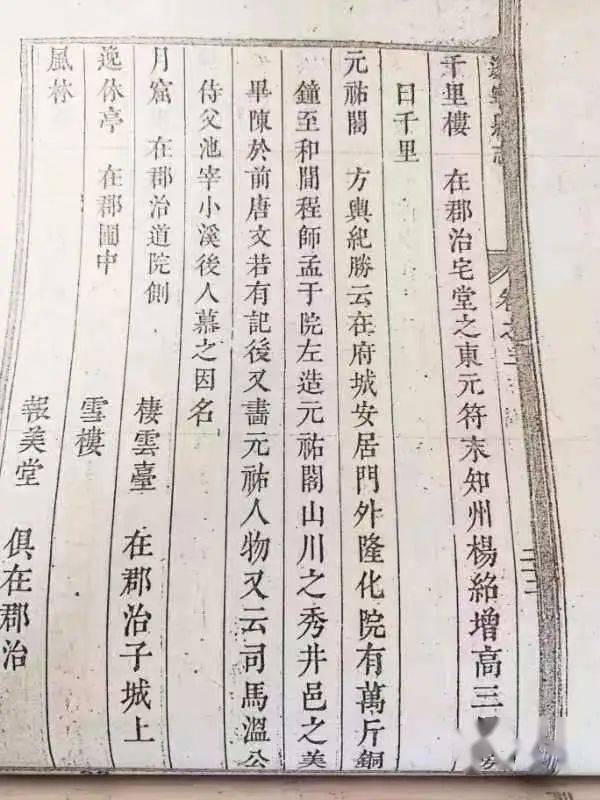 千里樓 在郡治宅堂之東元符末知州楊絡增高三
曰千里
元祐閣 方輿紀勝云在府城安居門外隆化院有萬斤銅
鐘至和間程師孟于院左造元祐閣山川之秀井邑之美
畢陳於前唐文若有記後又畵元祐人物又云司馬溫公
侍父池宰小溪後人慕之因名
月窟 在郡治道院側 棲雲臺 在郡治子城上
逸休亭 在郡圃中 雪樓
風林 報美堂 俱在郡治